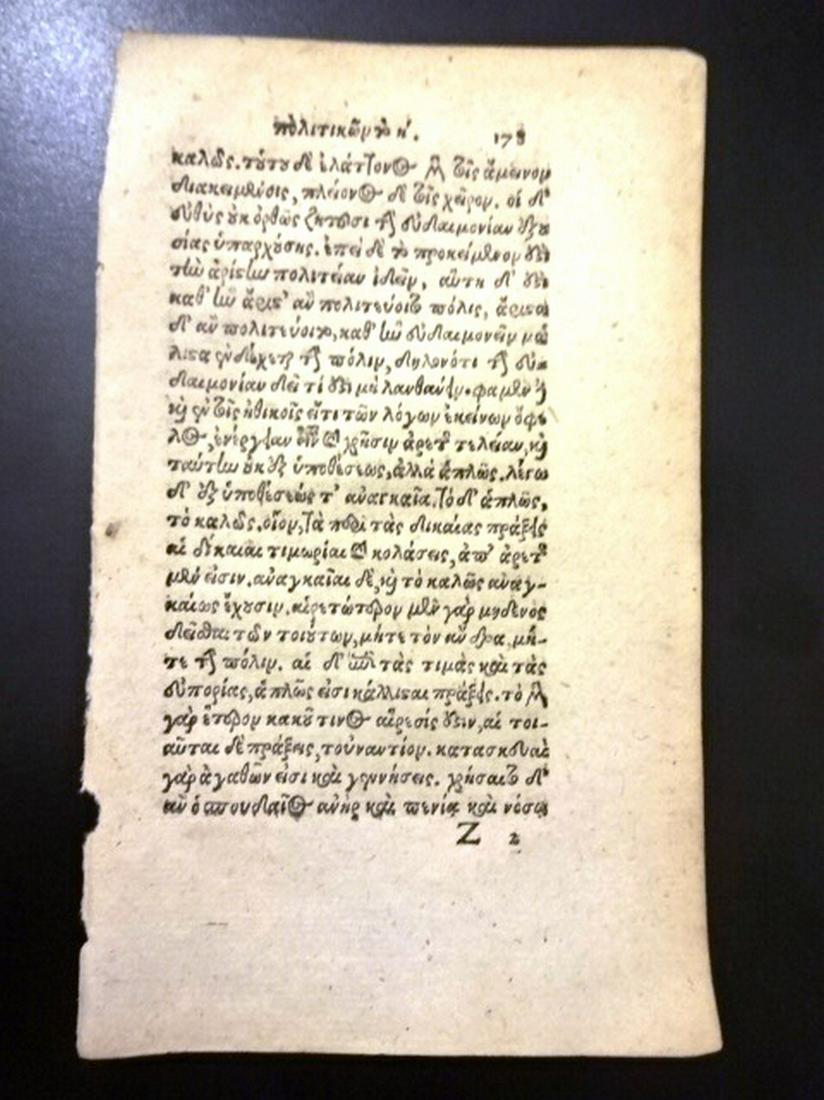 πολιτικῶν τὸ η΄. 178
καλῶς. τούτου δὲ ἐλάττονος μὲν τοῖς ἄμεινον
διακειμένοις, πλείονος δὲ τοῖς χεῖρον. οἱ δ᾽
εὐθὺς οὐκ ὀρθῶς ζητοῦσι τὴν εὐδαιμονίαν ἐξου
σίας ὑπαρχούσης. ἐπεὶ δὲ τὸ προκείμενον ἐστὶ
τὴν ἀρίστην πολιτείαν ἰδεῖν, αὕτη δ᾽ ἐστὶ
καθ᾽ ἣν ἄριστ᾽ ἂν πολιτεύοιτο πόλις, ἄριστα
δ᾽ ἂν πολιτεύοιτο, καθ᾽ ἣν εὐδαιμονεῖν μά
λιστα ἐνδέχεται τὴν πόλιν, δηλονότι τὴν εὐ-
δαιμονίαν δεῖ τί ἐστι μὴ λανθάνειν. φαμὲν δὲ
καὶ ἐν τοῖς ἠθικοῖς εἴ τι τῶν λόγων ἐκείνων ὄφε
λος, ἐνέργειαν εἶναι καὶ χρῆσιν ἀρετῆς τελείαν, καὶ
ταύτην οὐκ ἐξ ὑποθέσεως, ἀλλὰ ἁπλῶς. λέγω
δ᾽ ἐξ ὑποθέσεώς τ᾽ ἀναγκαῖα. τὸ δ᾽ ἁπλῶς,
τὸ καλῶς. οἷον, τὰ περὶ τὰς δικαίας πράξεις
αἱ δίκαιαι τιμωρίαι καὶ κολάσεις, ἀπ᾽ ἀρετῆς
μέν εἰσιν. ἀναγκαῖαι δὲ, καὶ τὸ καλῶς ἀναγ-
καίως ἔχουσιν. αἱρετώτερον μὲν γὰρ μηδενὸς
δεῖσθαι τῶν τοιούτων, μήτε τὸν ἄνδρα, μή-
τε τὴν πόλιν. αἱ δ᾽ ἐπὶ τὰς τιμὰς καὶ τὰς
εὐπορίας, ἁπλῶς εἰσι κάλλισται πράξεις. τὸ μὲν
γὰρ ἕτερον κακοῦ τινὸς αἵρεσίς ἐστιν, αἱ τοι-
αῦται δὲ πράξεις, τοὐναντίον. κατασκευαὶ
γὰρ ἀγαθῶν εἰσι καὶ γεννήσεις. χρήσαιτο δ᾽
ἂν ὁ σπουδαῖος ἀνὴρ καὶ πενίᾳ καὶ νόσῳ
Z 2